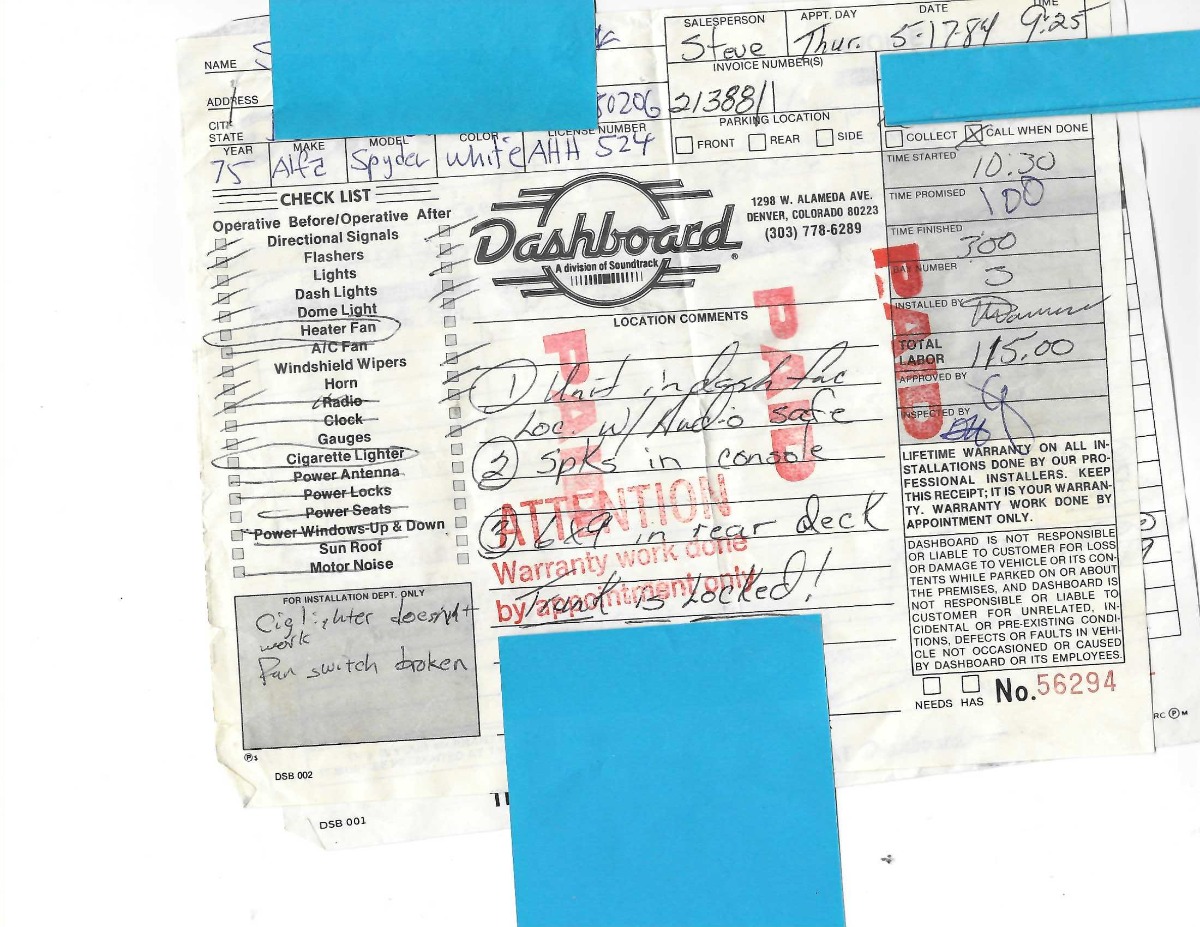 SALESPERSON APPT. DAY DATE TIME
Steve Thur. 5-17-84 9:25
NAME
INVOICE NUMBER(S)
ADDRESS
80206 213881
CITY
STATE
PARKING LOCATION
FRONT REAR SIDE
COLLECT CALL WHEN DONE
YEAR MAKE MODEL COLOR LICENSE NUMBER
75 Alfa Spyder white AHH 524
TIME STARTED 10:30
TIME PROMISED 100
TIME FINISHED 300
BAY NUMBER 5
INSTALLED BY
TOTAL
LABOR 115.00
APPROVED BY
INSPECTED BY
CHECK LIST
Operative Before/Operative After
Directional Signals
Flashers
Lights
Dash Lights
Dome Light
Heater Fan
A/C Fan
Windshield Wipers
Horn
Radio
Clock
Gauges
Cigarette Lighter
Power Antenna
Power Locks
Power Seats
Power Windows-Up & Down
Sun Roof
Motor Noise
Dashboard®
A division of Soundtrack
1298 W. ALAMEDA AVE.
DENVER, COLORADO 80223
(303) 778-6289
LOCATION COMMENTS
① Unit in dash fac
Loc. w/ Audio safe
② Spks in console
③ 6x9 in rear deck
Trunk is Locked!
PAID
PAID
PAID
ATTENTION
Warranty work done
by appointment only
LIFETIME WARRANTY ON ALL IN-
STALLATIONS DONE BY OUR PRO-
FESSIONAL INSTALLERS. KEEP
THIS RECEIPT; IT IS YOUR WARRAN-
TY. WARRANTY WORK DONE BY
APPOINTMENT ONLY.
DASHBOARD IS NOT RESPONSIBLE
OR LIABLE TO CUSTOMER FOR LOSS
OR DAMAGE TO VEHICLE OR ITS CON-
TENTS WHILE PARKED ON OR ABOUT
THE PREMISES, AND DASHBOARD IS
NOT RESPONSIBLE OR LIABLE TO
CUSTOMER FOR UNRELATED, IN-
CIDENTAL OR PRE-EXISTING CONDI-
TIONS, DEFECTS OR FAULTS IN VEHI-
CLE NOT OCCASIONED OR CAUSED
BY DASHBOARD OR ITS EMPLOYEES.
NEEDS HAS No. 56294
FOR INSTALLATION DEPT. ONLY
Cig lighter doesn't
work
Fan switch broken
DSB 002
DSB 001